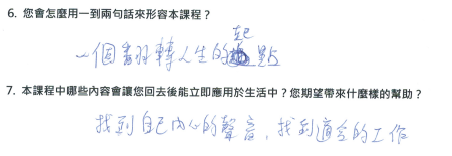 6. 您會怎麼用一到兩句話來形容本課程？
一個翻轉人生的起點
7. 本課程中哪些內容會讓您回去後能立即應用於生活中？您期望帶來什麼樣的幫助？
找到自己內心的聲音，找到適合的工作